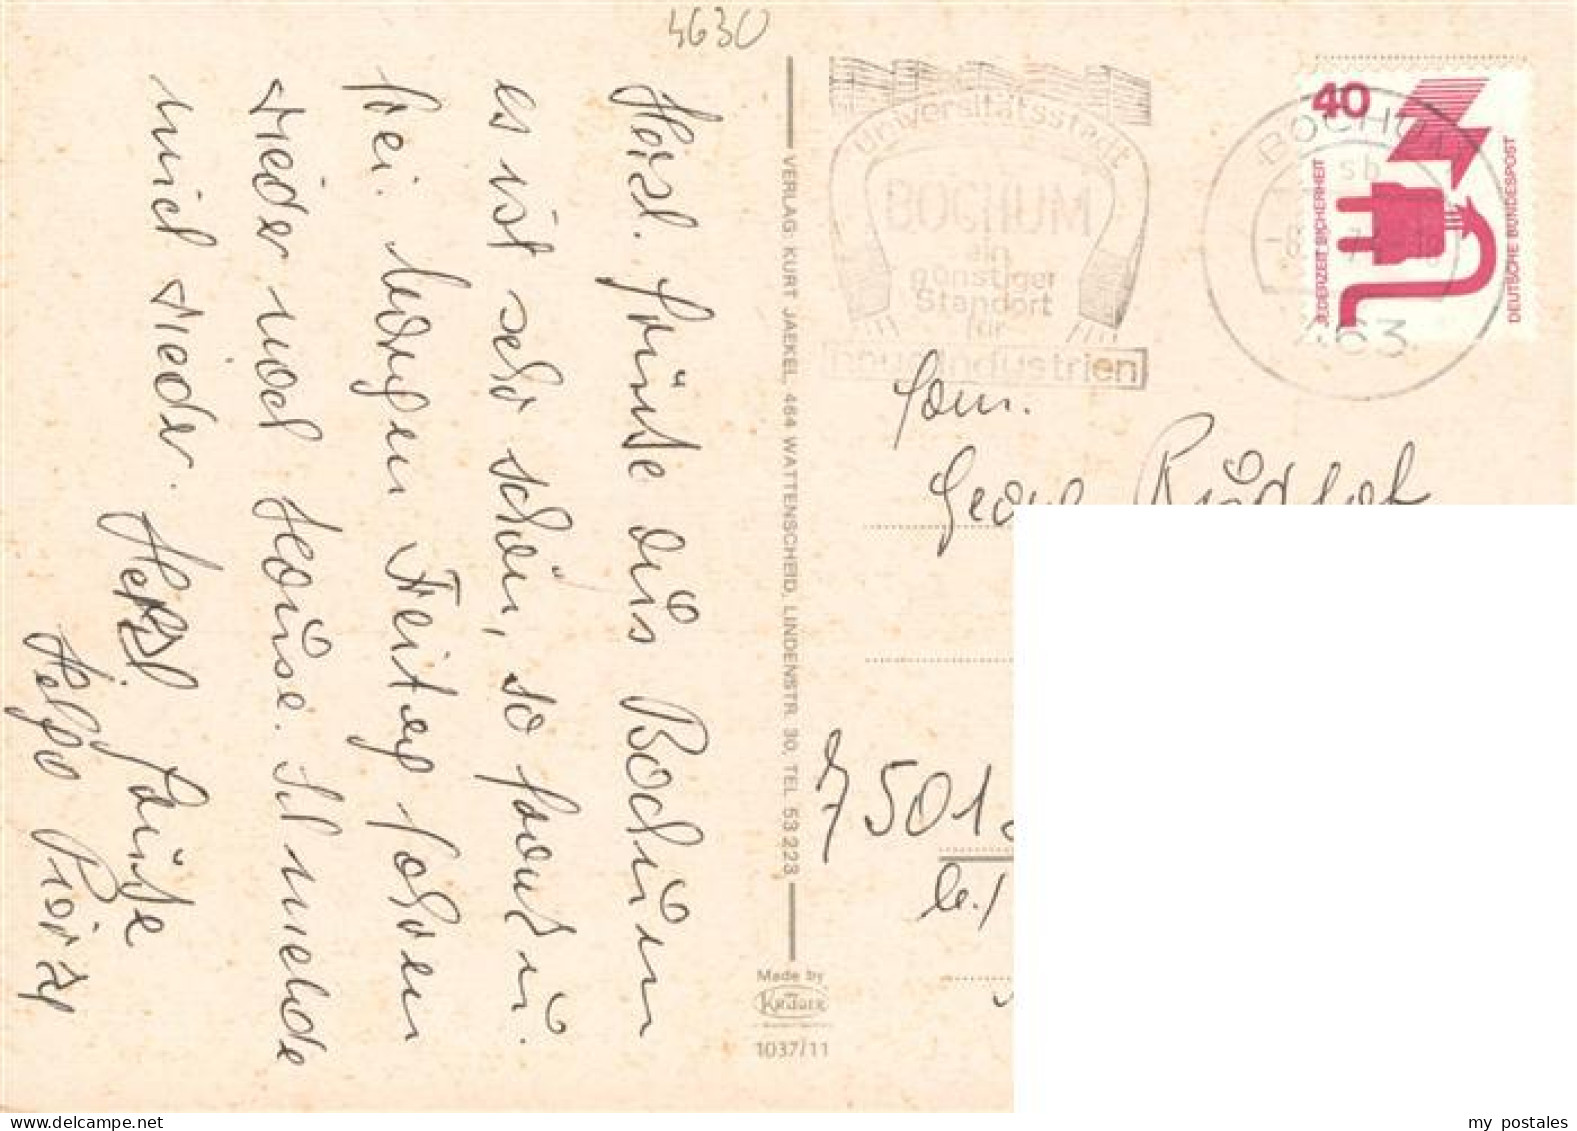 4630
Herzl. Grüße aus Bochum
es ist sehr schön, so
frei. Morgen Freitag fahren
wieder nach Hause. Ich melde
mich wieder. Herzl. Grüße
Helga
VERLAG: KURT JAEKEL, 464 WATTENSCHEID, LINDENSTR. 30, TEL. 53 223
Made by
KRÜGER
1037/11
Universitätsstadt
BOCHUM
ein
günstiger
Standort
für
neue Industrien
BOCHUM
sb
463
40
JEDERZEIT SICHERHEIT
DEUTSCHE BUNDESPOST
Fam.
Georg
7501
my postales